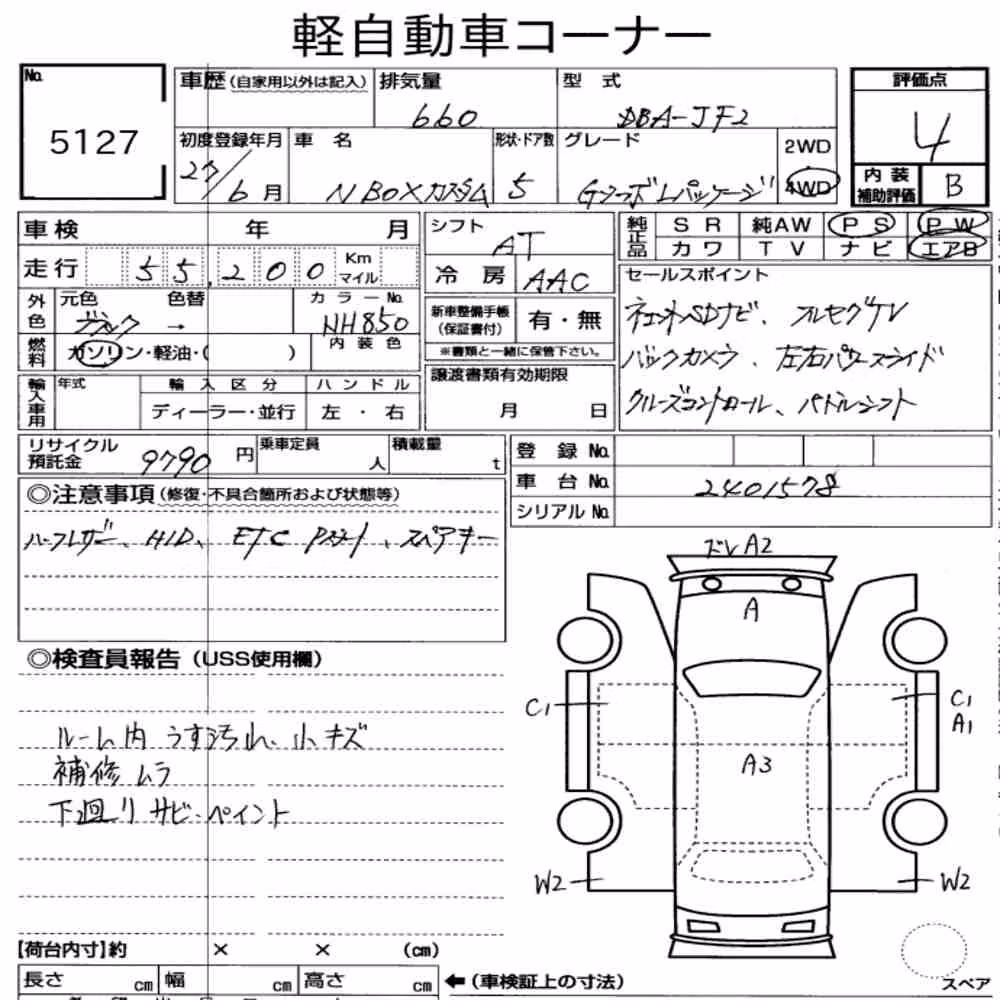 軽自動車コーナー
No.
5127
車歴(自家用以外は記入)
排気量
660
型 式
DBA-JF2
評価点
4
内装補助評価
B
初度登録年月
27/6月
車 名
N BOXカスタム
形状・ドア数
5
グレード
Gターボ Lパッケージ
2WD
4WD
車検 年 月
シフト
AT
純正品
SR 純AW PS PW
カワ TV ナビ エアB
走行 55,200 Km マイル
冷 房
AAC
セールスポイント
外色
元色 色替
→
カラーNo.
NH850
新車整備手帳(保証書付)
有・無
※書類と一緒に保管下さい。
ギャザズSDナビ、フルセグTV
バックカメラ、左右パワースライド
クルーズコントロール、パドルシフト
燃料
ガソリン・軽油・( )
内装色
輸入車用
年式
輸入区分
ハンドル
ディーラー・並行
左・右
譲渡書類有効期限
月 日
リサイクル預託金
9790円
乗車定員
人
積載量
t
登録No.
車台No.
2401578
シリアルNo.
◎注意事項(修復・不具合箇所および状態等)
ハーフレザー、HID、ETC Pスタート、スペアキー
ドレA2
A
C1
C1
A1
A3
W2
W2
スペア
◎検査員報告(USS使用欄)
ルーム内 うす汚れ、小キズ
補修ムラ
下廻りサビ・ペイント
【荷台内寸】約 × × (cm)
長さ cm 幅 cm 高さ cm
←(車検証上の寸法)